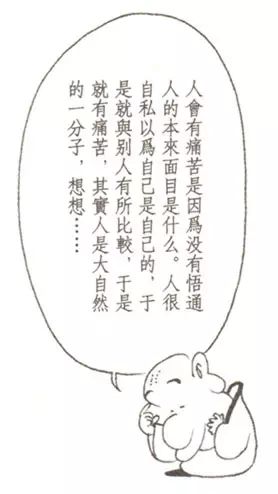 人會有痛苦是因爲没有悟通
人的本來面目是什么。人很
自私以爲自己是自己的，于
是就與别人有所比較，于是
就有痛苦，其實人是大自然
的一分子，想想……